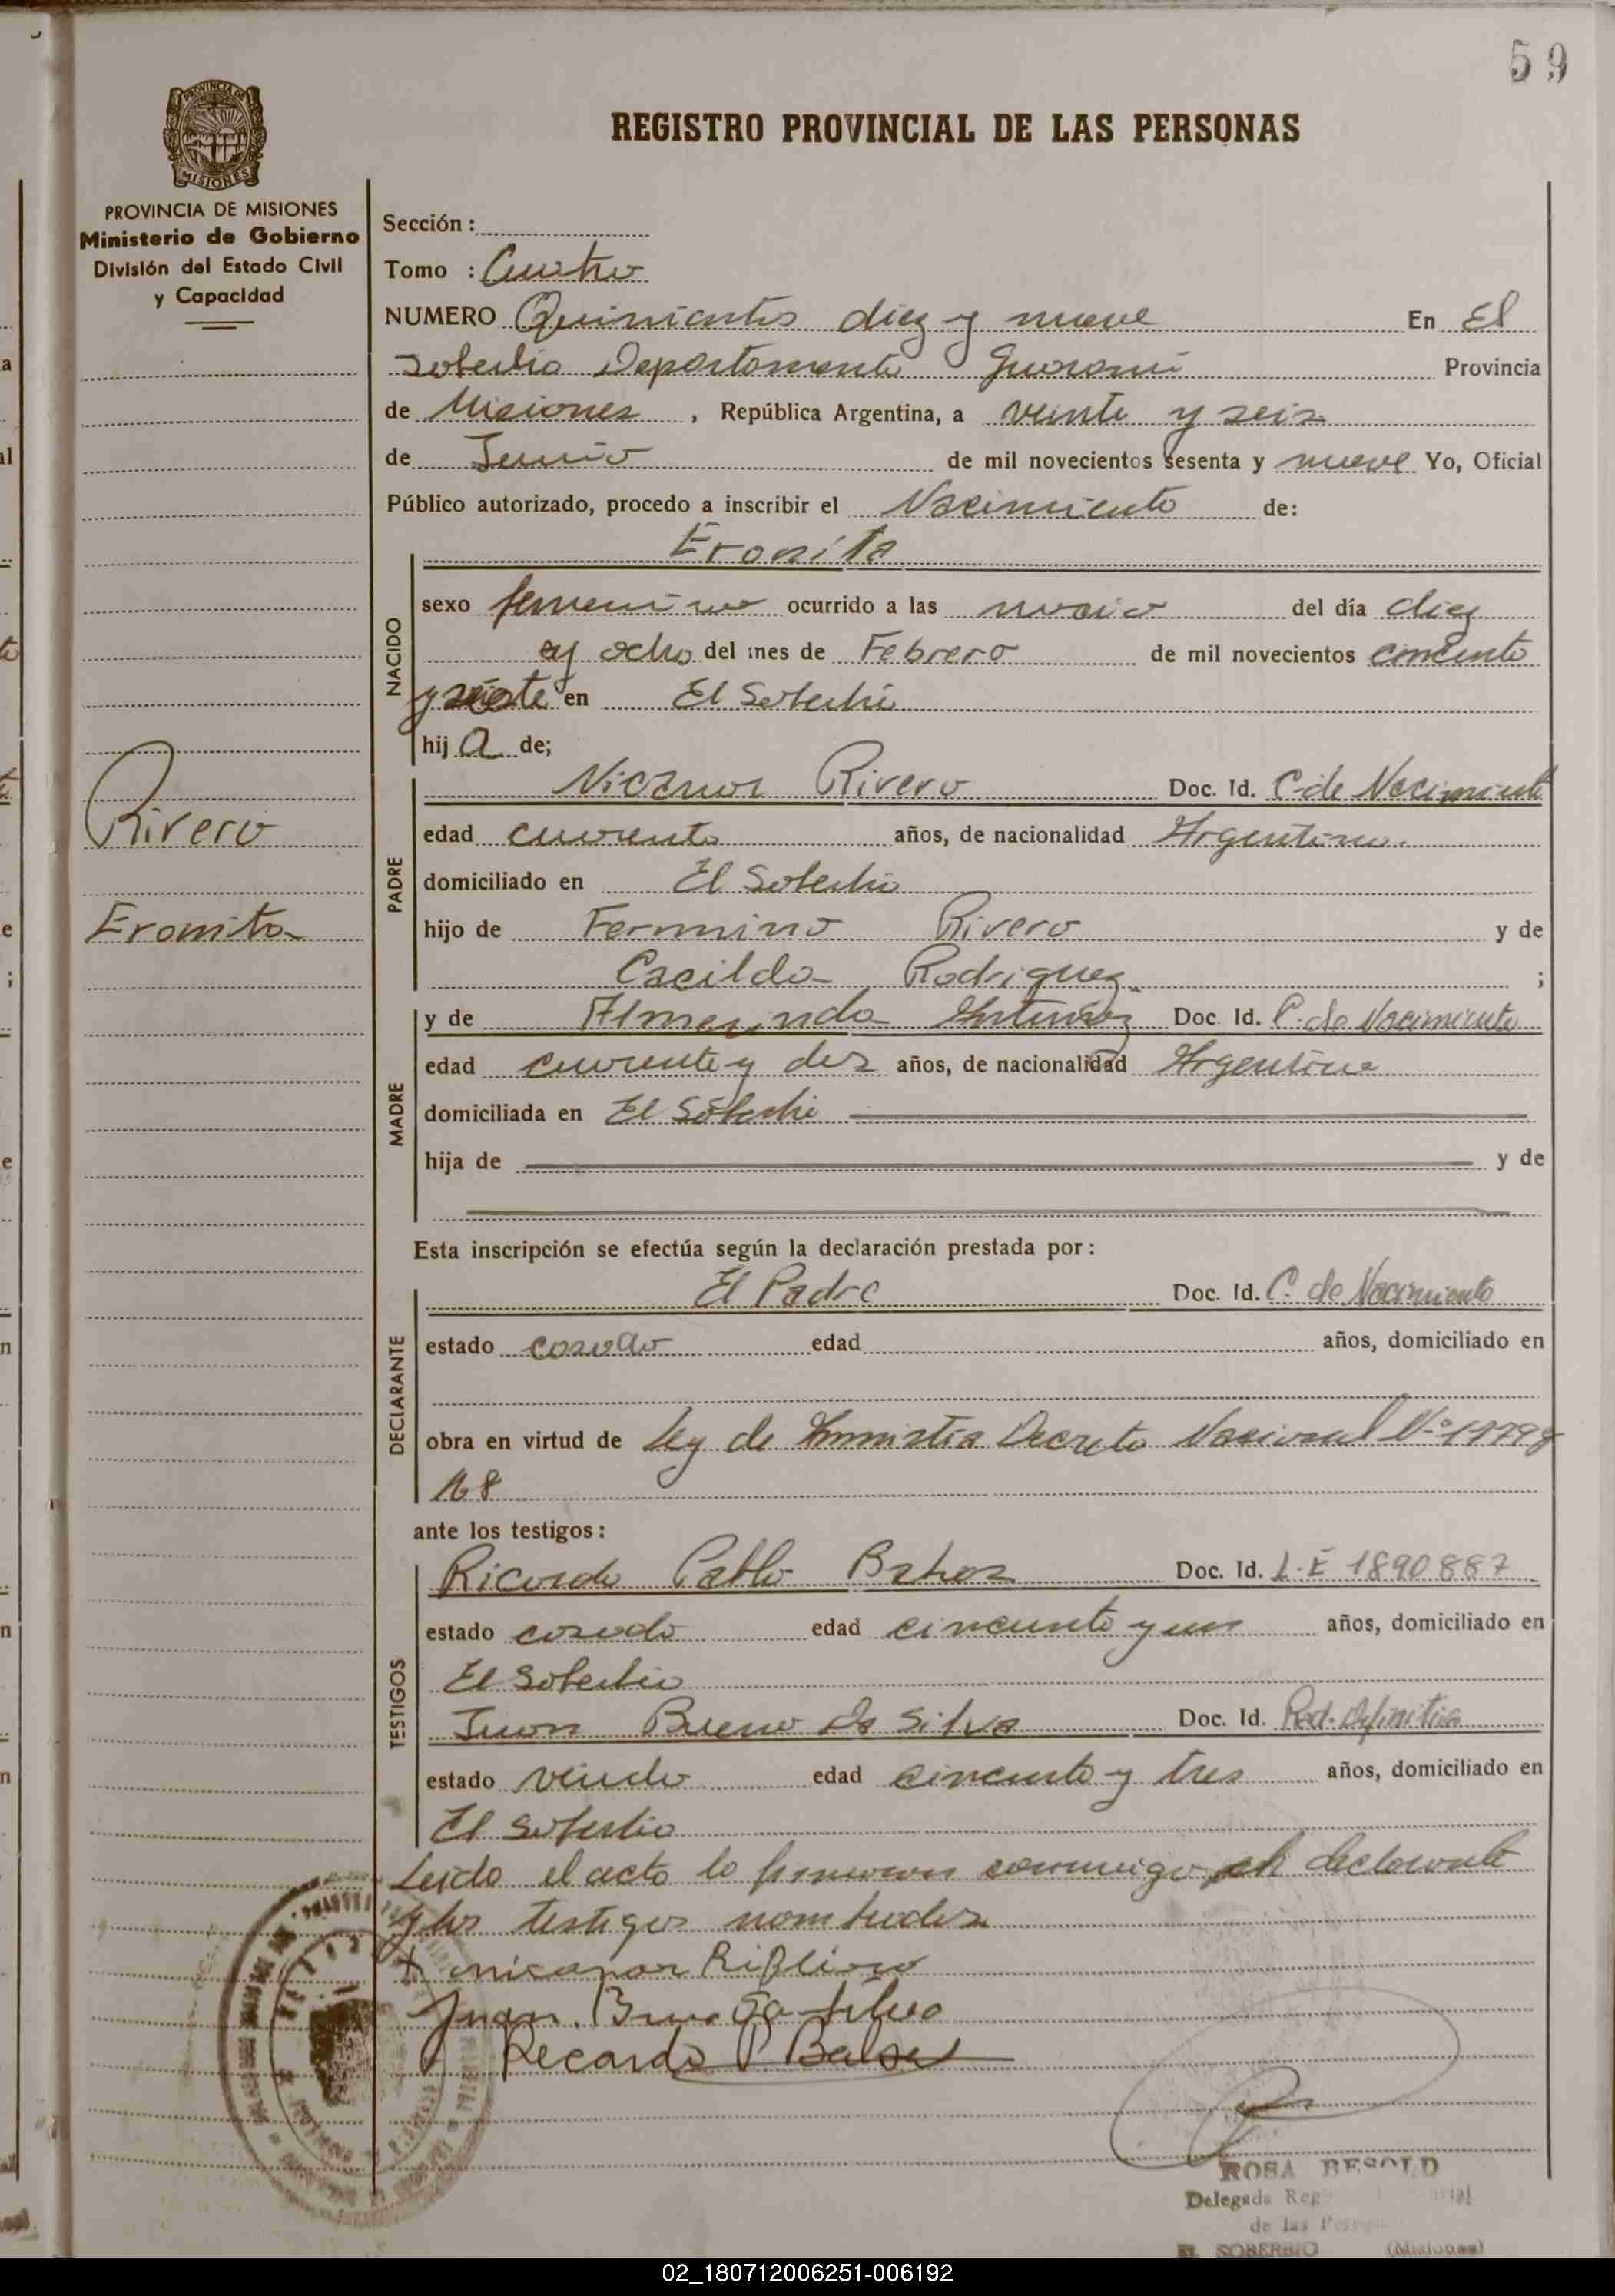 59
REGISTRO PROVINCIAL DE LAS PERSONAS
PROVINCIA DE
MISIONES
PROVINCIA DE MISIONES
Ministerio de Gobierno
División del Estado Civil
y Capacidad
Sección :
Tomo : Cuatro
NUMERO Quinientos diez y nueve En El
Soberbio Departamento Guarani Provincia
de Misiones , República Argentina, a veinte y seis
de Junio de mil novecientos sesenta y nueve Yo, Oficial
Público autorizado, procedo a inscribir el Nacimiento de:
Eronita
NACIDO
sexo femenino ocurrido a las del día diez
y ocho del mes de Febrero de mil novecientos cincuenta
y siete en El Soberbio
hij a de;
Rivero
Eronita
PADRE
Nicanor Rivero Doc. Id. C. de Nacimiento
edad cuarenta años, de nacionalidad Argentino.
domiciliado en El Soberbio
hijo de Fermino Rivero y de
Cacilda Rodriguez ;
MADRE
y de Doc. Id. C. de Nacimiento
edad cuarenta y dos años, de nacionalidad Argentina
domiciliada en El Soberbio
hija de y de
Esta inscripción se efectúa según la declaración prestada por :
DECLARANTE
El Padre Doc. Id. C. de Nacimiento
estado casado edad años, domiciliado en
obra en virtud de Ley de Amnistia Decreto Nacional Nº
68
ante los testigos :
TESTIGOS
Ricardo Pablo Doc. Id. L.E 1890887
estado casado edad cincuenta y un años, domiciliado en
El Soberbio
Juan Bueno Da Silva Doc. Id. Rad. Definitiva
estado viudo edad cincuenta y tres años, domiciliado en
El Soberbio
Leida el acta la firmaron conmigo el declarante
y los testigos nombrados
nicanor
Juan. Da Silva
Recardo P
ROSA BESOLD
Delegada
de las
EL SOBERBIO (Misiones)
02_180712006251-006192